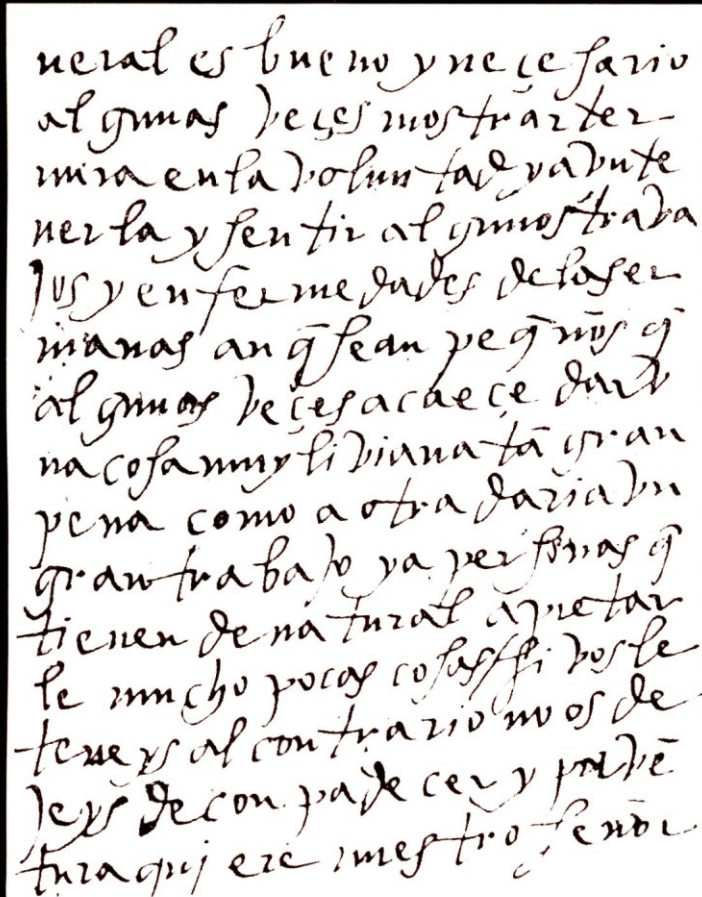 neral es bueno y neçesario
algunas veçes mostrar ter
nura en la voluntad y avn te
nerla y sentir algunos traba
jos y enfermedades de las er
manas an q̄ sean peq̄nos q̄
algunas veçes acaeçe dar v
na cosa muy liviana tā gran
pena como a otra daria vn
gran trabajo y a personas q̄
tienen de natural apretar
le mucho pocas cosas / si vos le
teneys al contrario no os de
jeys de conpadecer y por vē
tura qujere nuestro señor